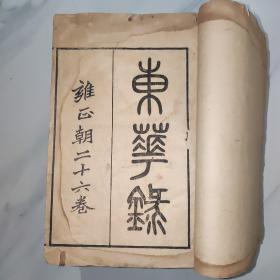 東華錄
雍正朝二十六卷